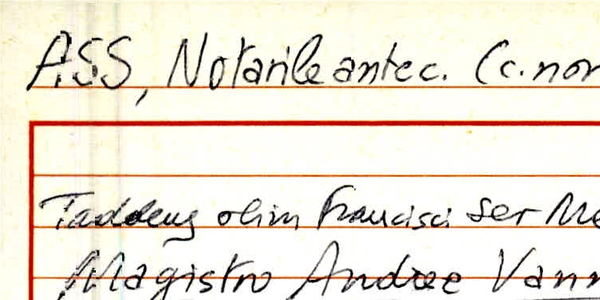 ASS, Notarile antec. (c. non
Taddeus olim Francisci Ser Me
Magistro Andree Vann